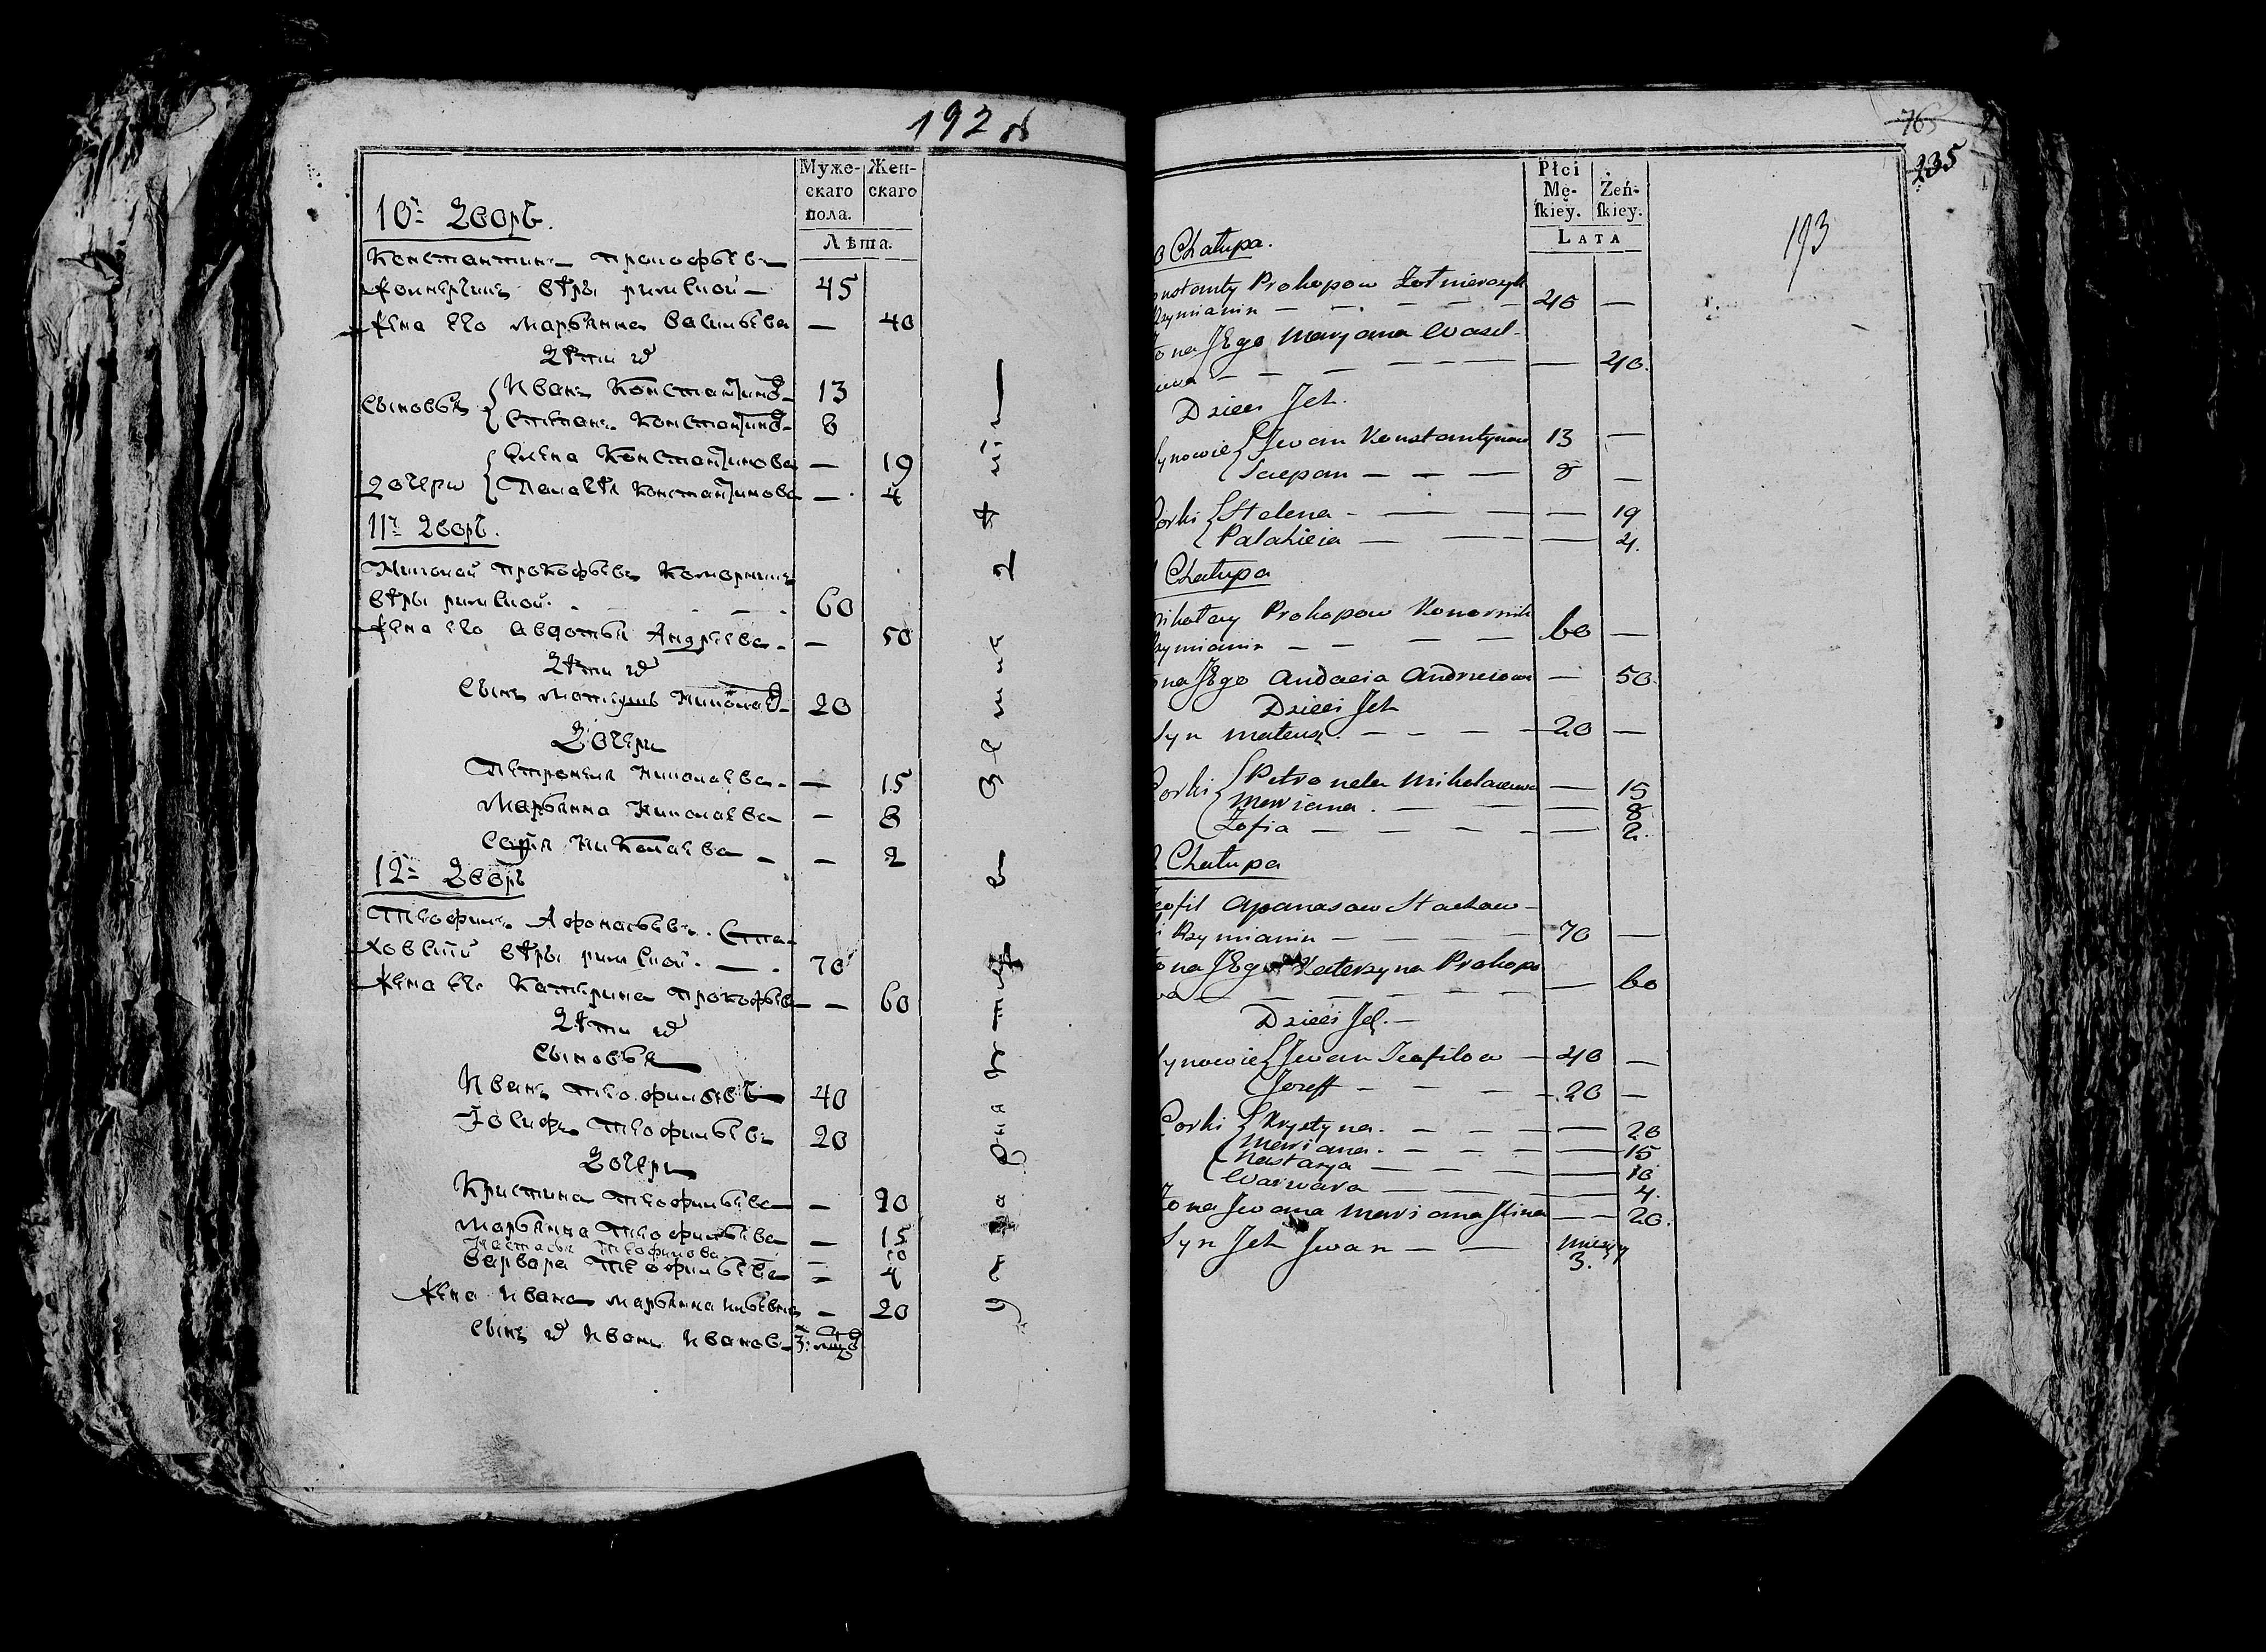 192 об
Муже-
скаго
пола.
Жен-
скаго
Лѣта.
10й Дворъ.
Константинъ Прокофьевъ
Жолнерчикъ вѣры римской — 45
Жена его Марьянна Васильева — 40
Дѣти их
Сыновья { Иванъ Константинов 13
Степанъ Константинов 8
Дочери { Елена Константинова — 19
Пелагѣя Константинова — 4
11й Дворъ.
Николай Прокофьевъ Коморникъ
вѣры римской. 60
Жена его Авдотья Андреева — 50
Дѣти их
Сынъ Матеушъ Николаев 20
Дочери
Петронеля Николаева — 15
Марьянна Николаева — 8
Софія Николаева — 2
12й Дворъ
Теофилъ Афонасьевъ Ста-
ховский вѣры римской. — 70
Жена его Катерина Прокофьева — 60
Дѣти их
Сыновья
Иванъ Теофильевъ 40
Іосифъ Теофильевъ 20
Дочери
Кристина Теофильева — 20
Марьянна Теофильева — 15
Настасья Теофилова — 10
Варвара Теофильева — 4
Жена Ивана Марьянна Ильевна — 20
Сынъ их Иванъ Иванов 3: мца
765
235
193
Płci
Mę-
skiey.
Żeń-
skiey.
LATA
0 Chałupa.
onstanty Prokopow Żołnierczyk
Rzymianin — — — — 45 —
Żona JEgo Maryana Wasil-
iewa — — — — — 40.
Dzieci Jch.
Synowie { Jwan Konstantynow 13 —
Sczepan — — — 8 —
Corki { Helena — — — 19
Palahieia — — — 4.
1 Chałupa
Mikołay Prokopow Komornik
Rzymianin — — — 60 —
Żona JEgo Audocia Andrieiowa — 50.
Dzieci Jch
Syn Mateusz — — — 20 —
Corki { Petronela Mikołaiewa — 15
Mariana. — — — 8
Zofia — — — 2.
2 Chałupa
Teofil Apanasow Stachow-
ki Rzymianin — — — 70 —
Żona JEgo Katerzyna Prokopo
wa — — — — — 60
Dzieci Jch. —
Synowie { Jwan Teofilow — 40 —
Jozeff — — — 20 —
Corki { Krystyna. — — — 20
Mariana. — — — 15
Nastazya — — — 10
Warwara — — — 4.
Żona Jwana Mariana Jlina — — 20.
Syn Jch Jwan — — Miesięcy
3.